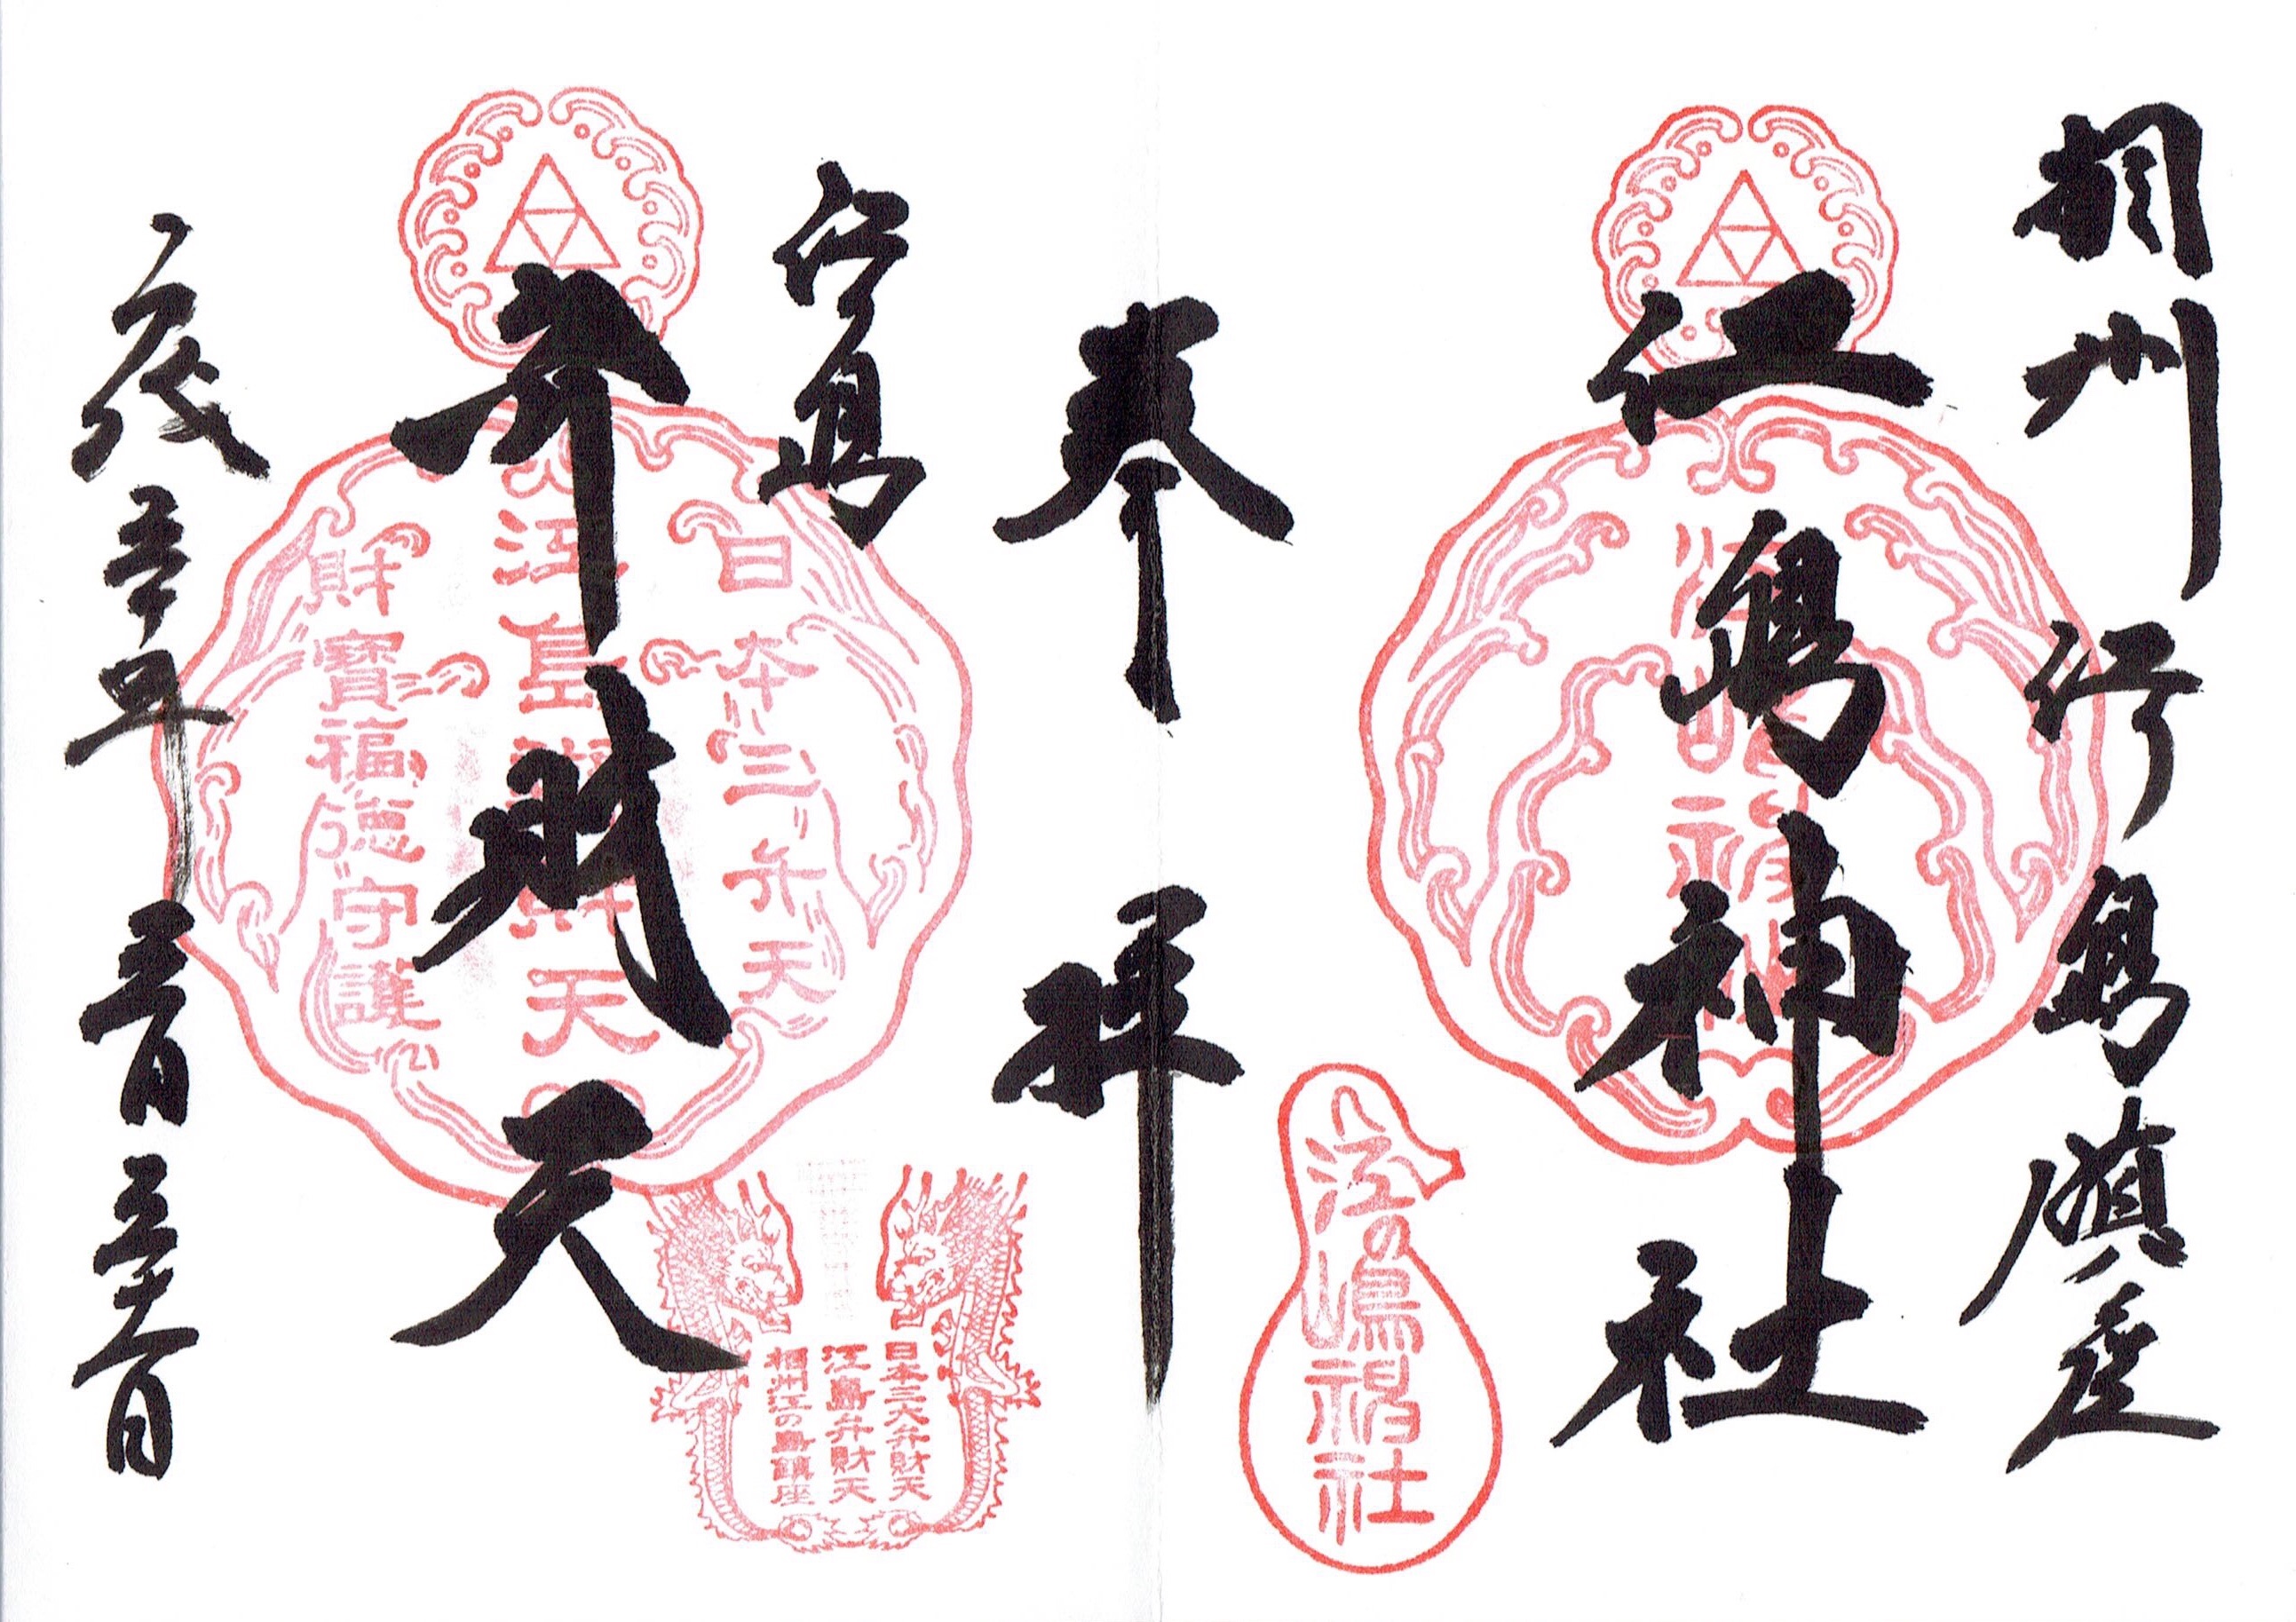 相州江島鎮座
江島神社
江の嶋神社
奉拝
江島
弁財天
日本三弁天
江島辨財天
財寶福徳守護
日本三大弁財天
江島弁財天
相州江の島鎮座
平成